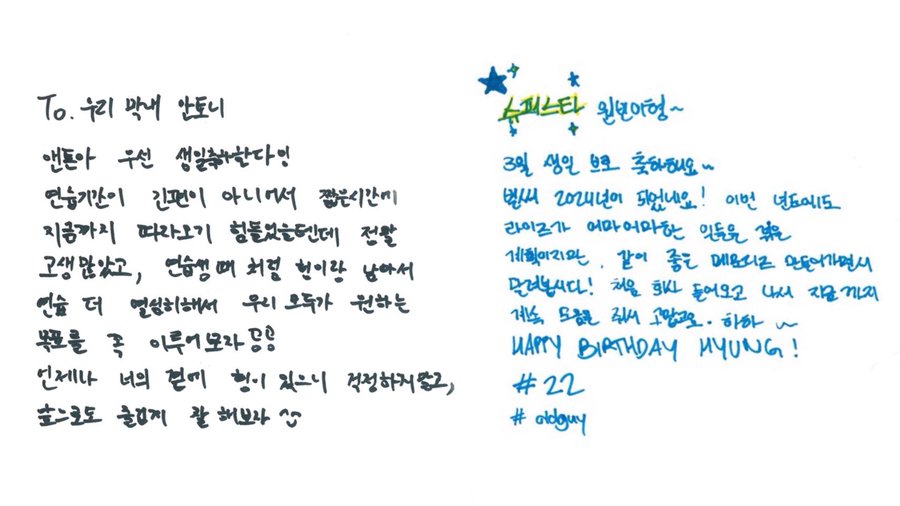 To. 우리 막내 안토니
앤톤아 우선 생일축하한다잉
연습기간이 긴편이 아니어서 짧은시간에
지금까지 따라오기 힘들었을텐데 정말
고생 많았고, 연습생 때 처럼 형이랑 남아서
연습 더 열심히해서 우리 모두가 원하는
목표를 꼭 이루어보자
언제나 너의 편에 형이 있으니 걱정하지말고,
앞으로도 즐겁게 잘 해보자
슈퍼스타 원빈이형~
3월 생일 축하해요~
벌써 2024년이 되었네요! 이번 년도에도
라이즈가 어마어마한 일들을 겪을
계획이지만, 같이 좋은 메모리즈 만들어가면서
달려봅시다! 처음 회사 들어오고 나서 지금까지
계속 도움을 줘서 고맙고요. 하하 ~
HAPPY BIRTHDAY HYUNG!
#22
# oldguy